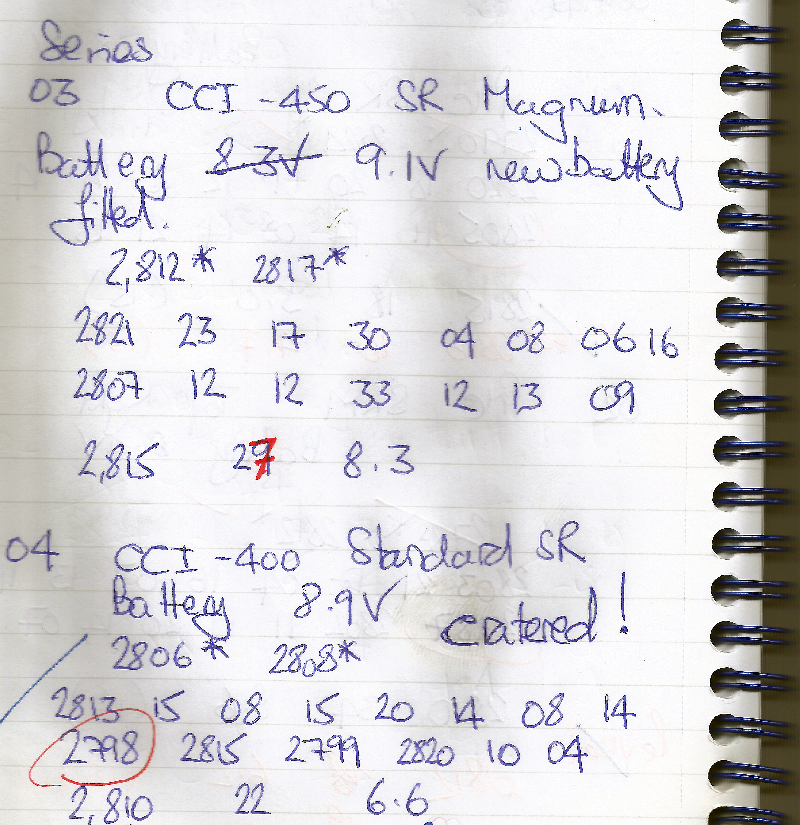 Series
03 CCI -450 SR Magnum.
Battery 8.3V 9.1V new battery
fitted.
2,812* 2817*
2821 23 17 30 04 08 06 16
2807 12 12 33 12 13 09
2,815 27 8.3
04 CCI -400 Standard SR
Battery 8.9V Cratered!
2806* 2808*
2813 15 08 15 20 14 08 14
2798 2815 2799 2820 10 04
2,810 22 6.6